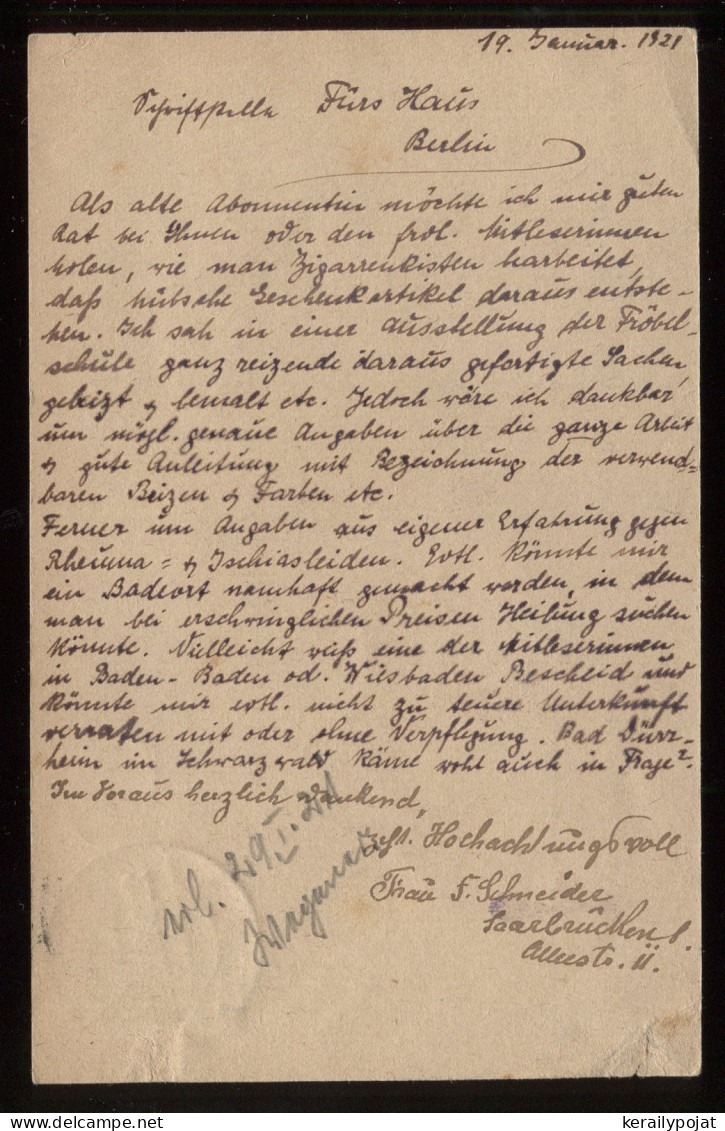 19. Januar. 1921
Schriftstelle Fürs Haus
Berlin
Als alte Abonnentin möchte ich mir guten
Rat bei Ihnen oder den frdl. Mitleserinnen
holen, wie man Zigarrenkisten bearbeitet,
daß hübsche Geschenkartikel daraus entste-
hen. Ich sah in einer Ausstellung der Fröbel-
schule ganz reizende daraus gefertigte Sachen,
gebeizt & bemalt etc. Jedoch wäre ich dankbar,
um mögl. genaue Angaben über die ganze Arbeit
& gute Anleitung mit Bezeichnung der verwend=
baren Beizen & Farben etc.
Ferner um Angaben aus eigener Erfahrung gegen
Rheuma= & Ischiasleiden. Evtl. könnte mir
ein Badeort namhaft gemacht werden, in dem
man bei erschwinglichen Preisen Heilung suchen
könnte. Vielleicht weiß eine der Mitleserinnen
in Baden-Baden od. Wiesbaden Bescheid und
könnte mir evtl. nicht zu teuere Unterkunft
verraten mit oder ohne Verpflegung. Bad Dürr-
heim im Schwarzwald käme wohl auch in Frage?.
Im Voraus herzlich dankend,
Hochachtungsvoll
Frau F. Schneider
Saarbrücken
Alleestr. 11.
29. I. 21
kerailypojat.com